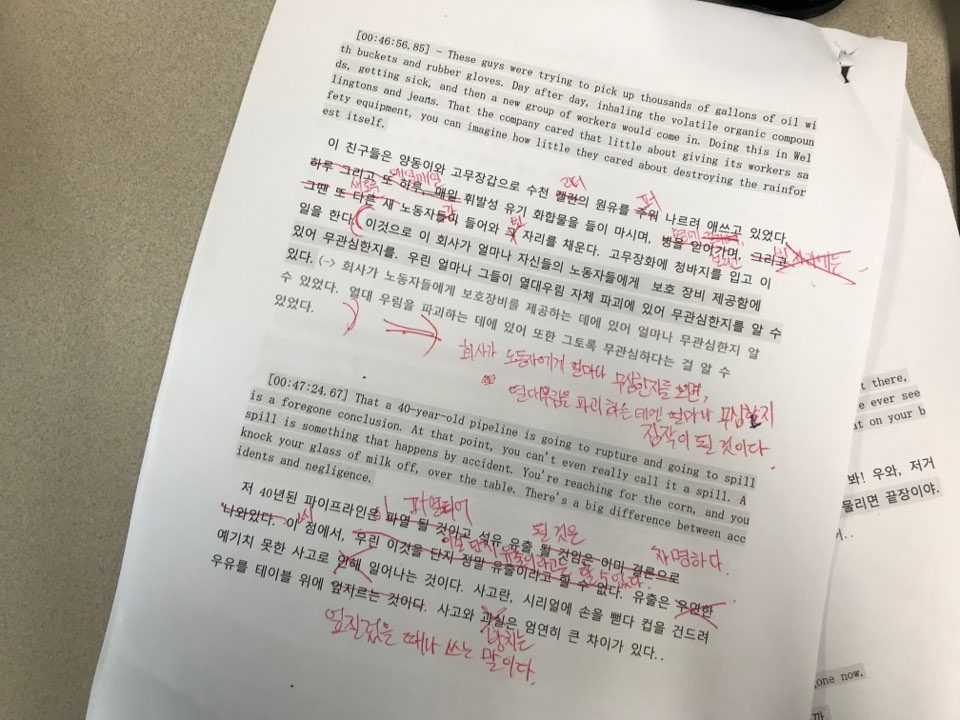 [00:46:56.85] - These guys were trying to pick up thousands of gallons of oil wi
th buckets and rubber gloves. Day after day, inhaling the volatile organic compoun
ds, getting sick, and then a new group of workers would come in. Doing this in Wel
lingtons and jeans. That the company cared that little about giving its workers sa
fety equipment, you can imagine how little they cared about destroying the rainfor
est itself.
이 친구들은 양동이와 고무장갑으로 수천 캘란의 원유를 주워 나르려 애쓰고 있었다.
갤런 퍼
하루 그리고 또 하루, 매일 휘발성 유기 화합물을 들이 마시며, 병을 얻어가며, 그리고
매일매일
그땐 또 다른 새 노동자들이 들어와 그 자리를 채운다. 고무장화에 청바지를 입고 이
새로운 빈
일을 한다. 이것으로 이 회사가 얼마나 자신들의 노동자들에게 보호 장비 제공함에
있어 무관심한지를. 우린 얼마나 그들이 열대우림 자체 파괴에 있어 무관심한지를 알 수
있다. (-> 회사가 노동자들에게 보호장비를 제공하는 데에 있어 얼마나 무관심한지 알
수 있었다. 열대 우림을 파괴하는 데에 있어 또한 그토록 무관심하다는 걸 알 수
있었다.
회사가 노동자에게 얼마나 무심한지를 보면,
열대우림을 파괴하는 데엔 얼마나 무심할지
짐작이 될 것이다.
[00:47:24.67] That a 40-year-old pipeline is going to rupture and going to spill
is a foregone conclusion. At that point, you can't even really call it a spill. A
spill is something that happens by accident. You're reaching for the corn, and you
knock your glass of milk off, over the table. There's a big difference between acc
idents and negligence.
저 40년된 파이프라인은 파열 될 것이고 석유 유출 될 것임은 아마 결론으로
이 파열되어 될 것은 자명하다.
나와있다. 이 점에서, 우린 이것을 단지 정말 유출이라고 할 수 없다. 유출은 우연한
시 이를 단지 유출이라고는 할 수 없다.
예기치 못한 사고로 인해 일어나는 것이다. 사고란, 시리얼에 손을 뻗다 컵을 건드려
우유를 테이블 위에 엎지르는 것이다. 사고와 과실은 엄연히 큰 차이가 있다..
엎질렀을 때나 쓰는 말이다.
방치는
t there,
e ever see
t on your b
봐! 우와, 저거
물리면 끝장이야.
one now.